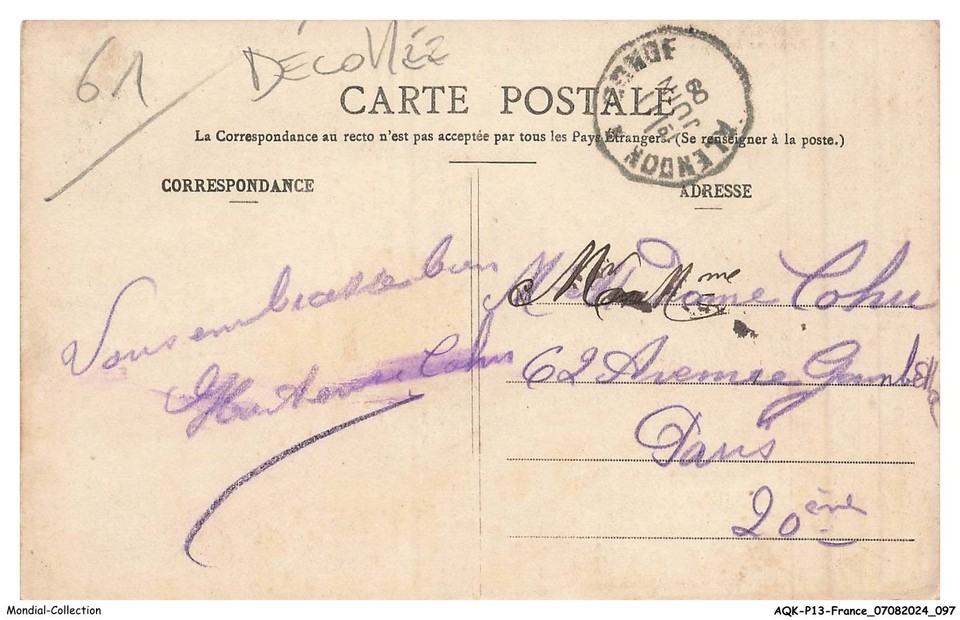 61 DÉCOLLÉE
CARTE POSTALE
La Correspondance au recto n'est pas acceptée par tous les Pays Étrangers. (Se renseigner à la poste.)
CORRESPONDANCE
Vous embrasse bien
Cohu
ADRESSE
Cohu
62 Avenue Gambetta
Paris
20ème
ALENÇON
08
Mondial-Collection
AQK-P13-France_07082024_097